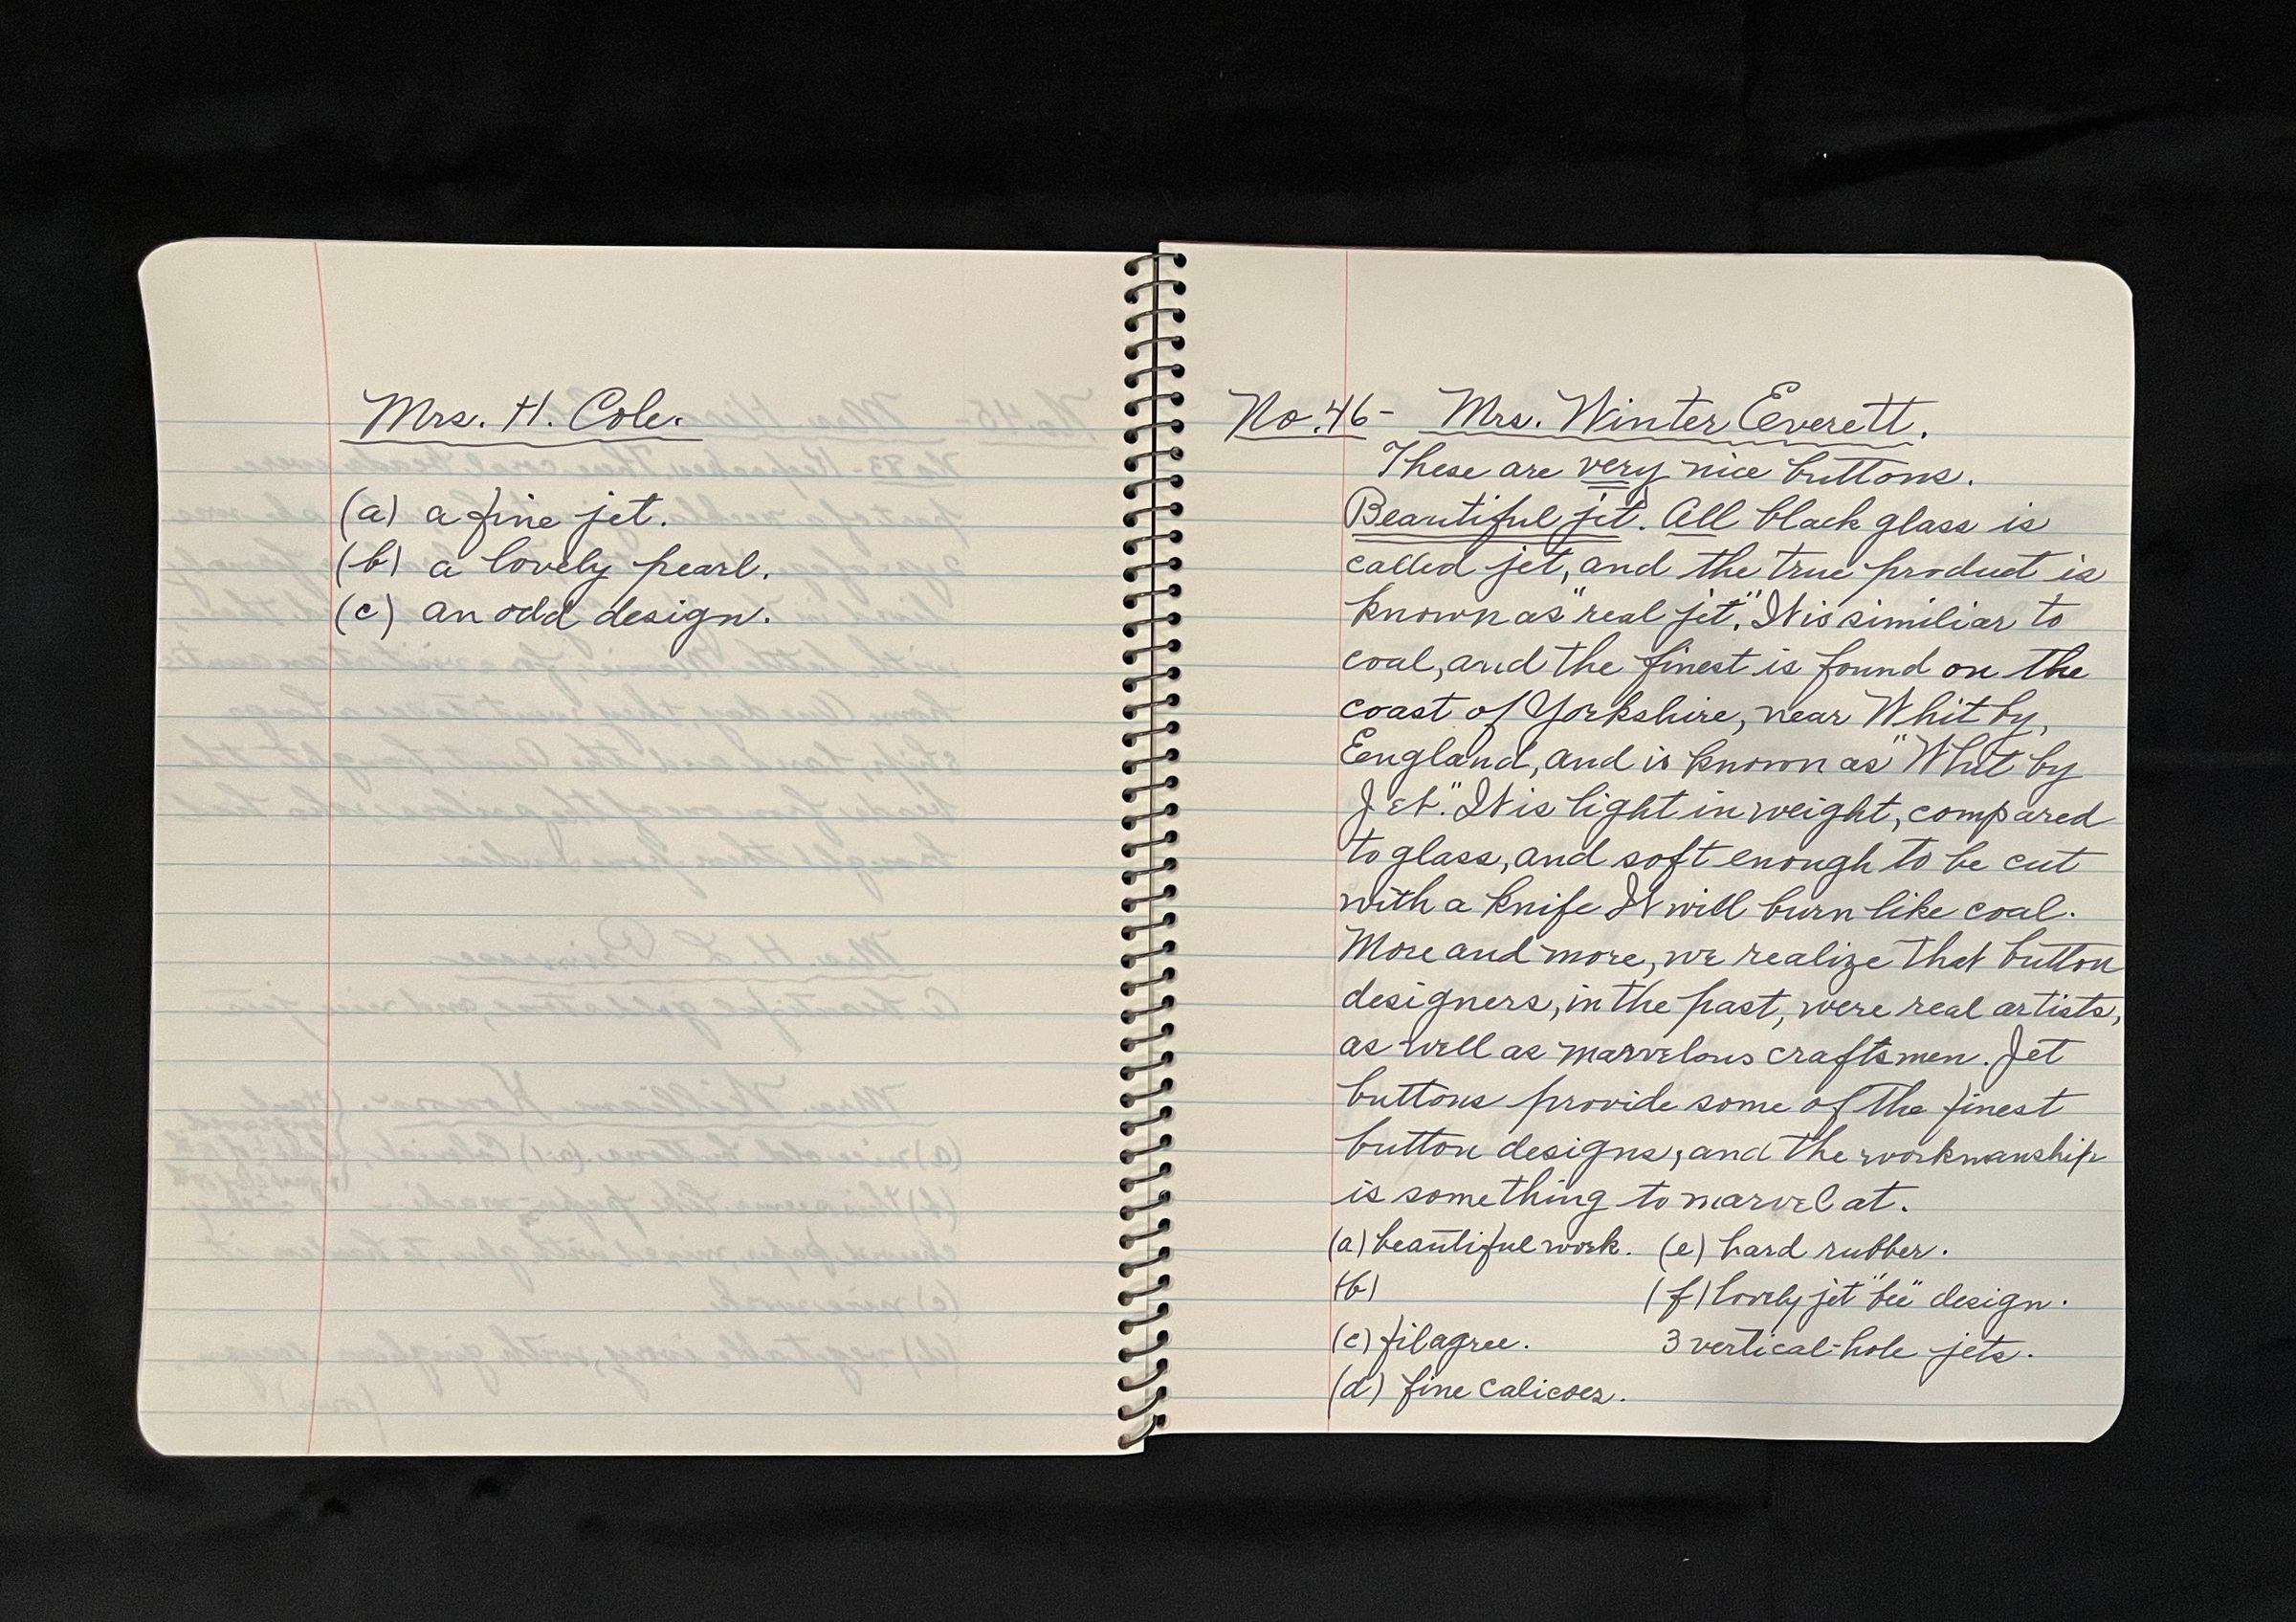 Mrs. H. Cole.
(a) a fine jet.
(b) a lovely pearl.
(c) an odd design.
No. 46- Mrs. Winter Everett.
These are very nice buttons.
Beautiful jet. All black glass is
called jet, and the true product is
known as "real jet." It is similiar to
coal, and the finest is found on the
coast of Yorkshire, near Whitby,
Eengland, and is known as "Whitby
Jet." It is light in weight, compared
to glass, and soft enough to be cut
with a knife It will burn like coal.
More and more, we realize that button
designers, in the past, were real artists,
as well as marvelous craftsmen. Jet
buttons provide some of the finest
button designs, and the workmanship
is something to marvel at.
(a) beautiful work. (e) hard rubber.
(b) (f) lovely jet "bee" design.
(c) filagree. 3 vertical-hole jets.
(d) fine calicoes.